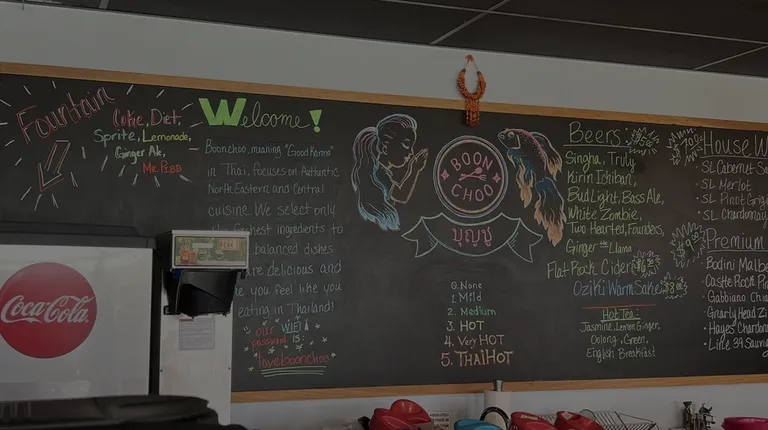 Fountain
Coke, Diet,
Sprite, Lemonade,
Ginger Ale,
Mr. Pibb
Welcome!
Boonchoo, meaning "Good Karma"
in Thai, focuses on Authentic
North Eastern and Central
cuisine. We select only
the freshest ingredients to
balanced dishes
are delicious and
you feel like you
eating in Thailand!
OUR WIFI
password is:
loveboonchoo
BOON
CHOO
บุญชู
0. None
1. Mild
2. Medium
3. HOT
4. Very HOT
5. THAI HOT
Beers:
Singha, Truly
Kirin Ichiban,
Bud Light, Bass Ale,
White Zombie,
Two Hearted, Founders,
Ginger the Llama
Flat Rock Cider
Oziki Warm Sake
Hot Tea:
Jasmine, Lemon Ginger,
Oolong, Green,
English Breakfast
House W
SL Cabernet Sau
SL Merlot
SL Pinot Grigi
SL Chardonnay
Premium
Bodini Malbe
Castle Rock Pin
Gabbiana Chia
Gnarly Head Zi
Hayes Chardonna
Line 39 Sauvig
Coca-Cola